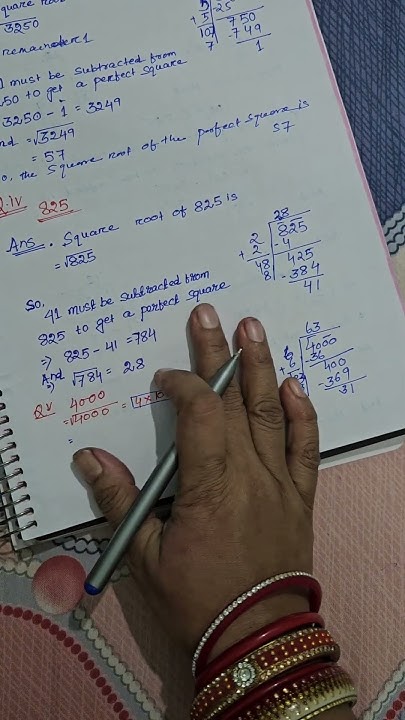 3250
remainder 1
1 must be subtracted from
50 to get a perfect square
3250 - 1 = 3249
nd = √3249
= 57
So, the Square root of the perfect square is
57
5 -25
+ 5 750
107 -749
7 1
Q.iv 825
Ans. Square root of 825 is
= √825
28
2 825
+ 2 - 4
48 425
8 - 384
41
So,
41 must be subtracted from
825 to get a perfect square
⇒ 825 - 41 = 784
And
⇒ √784 = 28
63
6 4000
+ 6 -36
400
-369
31
Q V 4000
= √4000 =
=